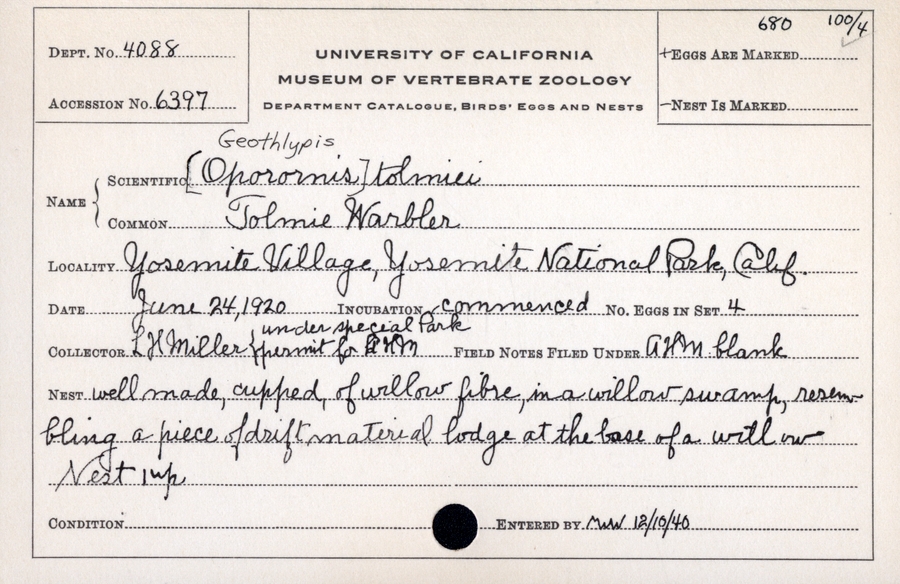 680 100/4
Dept. No. 4088
UNIVERSITY OF CALIFORNIA
MUSEUM OF VERTEBRATE ZOOLOGY
Department Catalogue, Birds' Eggs and Nests
+Eggs Are Marked
Accession No. 6397
-Nest Is Marked
Geothlypis
Name Scientific [Oporornis] tolmiei
Common Tolmie Warbler
Locality Yosemite Village, Yosemite National Park, Calif.
Date June 24, 1920 Incubation commenced No. Eggs in Set 4
under special Park
Collector L H Miller permit for Field Notes Filed Under blank
Nest well made, cupped, of willow fibre, in a willow swamp, resem-
bling a piece of drift material lodge at the base of a willow
Nest 1
Condition Entered by 12/10/40